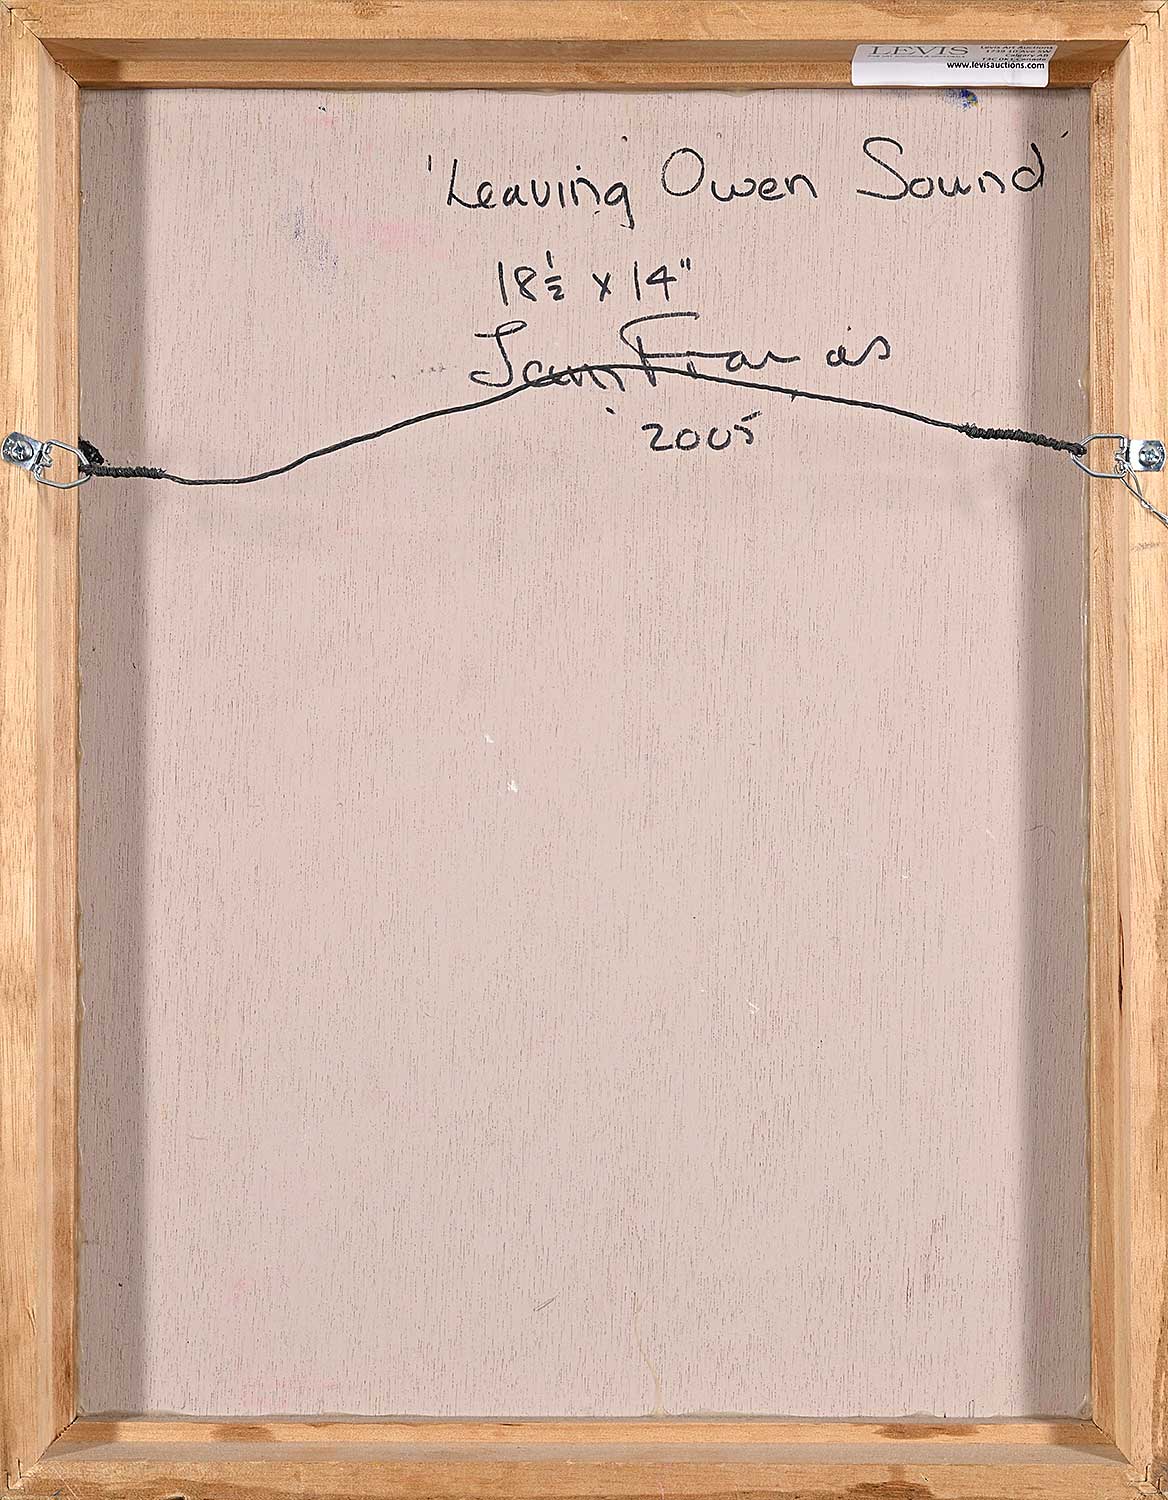 LEVIS
Levis Art Auctions
Calgary AB
www.levisauctions.com
'Leaving Owen Sound'
18½ x 14"
Francis
2005